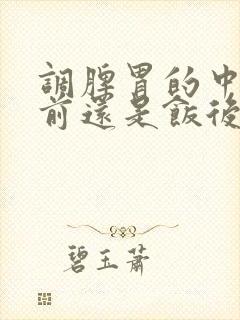 調脾胃的中
前還是飯後
碧玉蕭